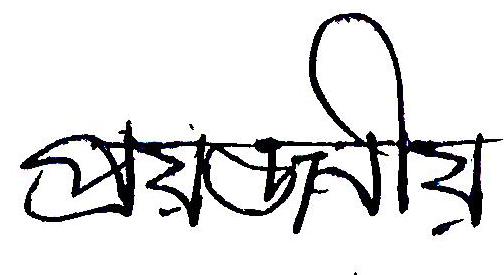 প্রয়জনীয়